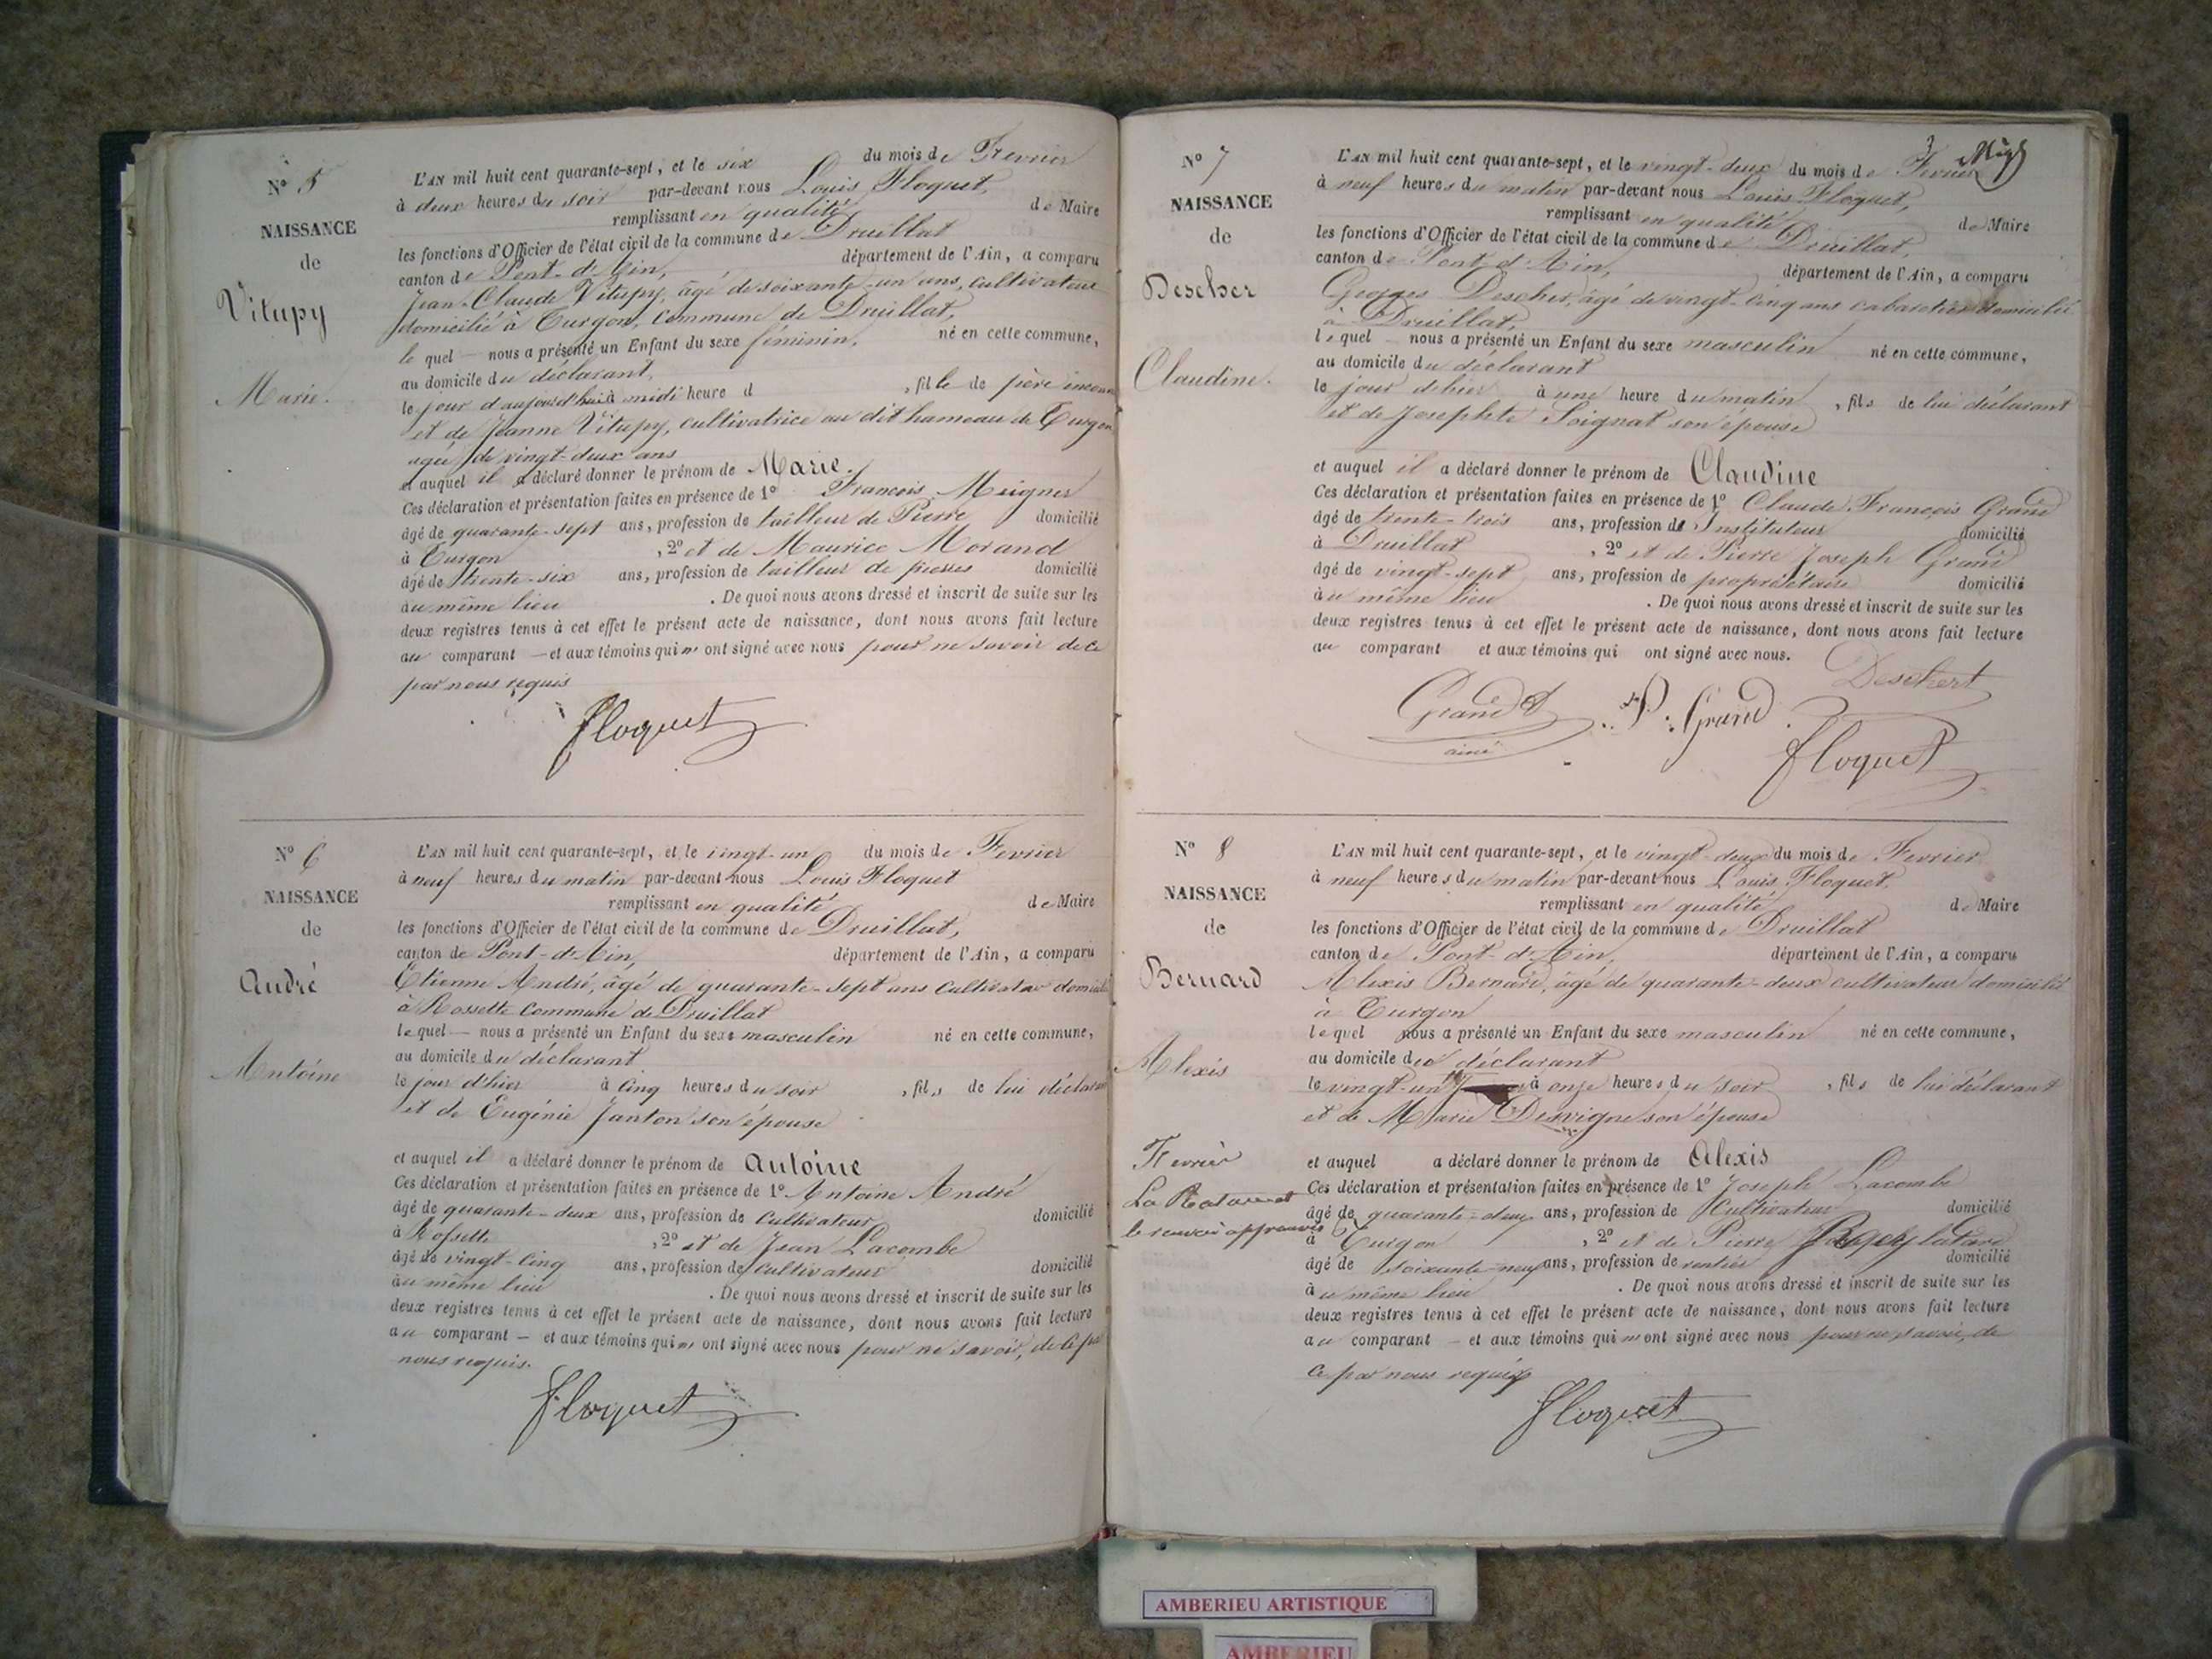 N° 5
NAISSANCE
de
Vitupy
Marie.
L'AN mil huit cent quarante-sept, et le six du mois de Fevrier
à deux heures du soir par-devant nous Louis Floquet,
remplissant en qualité de Maire
les fonctions d'Officier de l'état civil de la commune de Druillat
canton de Pont-d'Ain, département de l'Ain, a comparu
Jean-Claude Vitupy, âgé de soixante-un ans, cultivateur
domicilié à Turgon, Commune de Druillat,
le quel — nous a présenté un Enfant du sexe féminin, né en cette commune,
au domicile du déclarant,
le jour d'aujourd'hui à midi heure d , fille de père inconnu
et de Jeanne Vitupy, cultivatrice au dit hameau de Turgon
agée de vingt-deux ans
et auquel il a déclaré donner le prénom de Marie.
Ces déclaration et présentation faites en présence de 1° François Meignier
âgé de quarante-sept ans, profession de tailleur de Pierre domicilié
à Turgon , 2° et de Maurice Morand
âgé de trente-six ans, profession de tailleur de pierres domicilié
au même lieu . De quoi nous avons dressé et inscrit de suite sur les
deux registres tenus à cet effet le présent acte de naissance, dont nous avons fait lecture
au comparant — et aux témoins qui n'ont signé avec nous pour ne savoir de ce
par nous requis
Floquet
N° 6
NAISSANCE
de
André
Antoine
L'AN mil huit cent quarante-sept, et le vingt-un du mois de Fevrier
à neuf heures du matin par-devant nous Louis Floquet
remplissant en qualité de Maire
les fonctions d'Officier de l'état civil de la commune de Druillat,
canton de Pont-d'Ain, département de l'Ain, a comparu
Etienne André, âgé de quarante-sept ans cultivateur domicilié
à Rossette Commune de Druillat
le quel — nous a présenté un Enfant du sexe masculin né en cette commune,
au domicile du déclarant
le jour d'hier à cinq heures du soir , fils de lui déclarant
et de Eugénie Janton son épouse
et auquel il a déclaré donner le prénom de Antoine
Ces déclaration et présentation faites en présence de 1° Antoine André
âgé de quarante-deux ans, profession de Cultivateur domicilié
à Rossette , 2° et de Jean Lacombe
âgé de vingt-cinq ans, profession de cultivateur domicilié
au même lieu . De quoi nous avons dressé et inscrit de suite sur les
deux registres tenus à cet effet le présent acte de naissance, dont nous avons fait lecture
au comparant — et aux témoins qui n'ont signé avec nous pour ne savoir, de ce par
nous requis.
Floquet
3
N° 7
NAISSANCE
de
Descher
Claudine.
L'AN mil huit cent quarante-sept, et le vingt-deux du mois de Fevrier
à neuf heures du matin par-devant nous Louis Floquet,
remplissant en qualité de Maire
les fonctions d'Officier de l'état civil de la commune de Druillat,
canton de Pont-d'Ain, département de l'Ain, a comparu
Georges Descher, âgé de vingt-cinq ans cabaretier domicilié
à Druillat,
le quel nous a présenté un Enfant du sexe masculin né en cette commune,
au domicile du déclarant
le jour d'hier à une heure du matin , fils de lui déclarant
et de Josephte Soignat son épouse
et auquel il a déclaré donner le prénom de Claudine
Ces déclaration et présentation faites en présence de 1° Claude François Grand
âgé de trente-trois ans, profession de Instituteur domicilié
à Druillat , 2° et de Pierre Joseph Grand
âgé de vingt-sept ans, profession de propriétaire domicilié
au même lieu . De quoi nous avons dressé et inscrit de suite sur les
deux registres tenus à cet effet le présent acte de naissance, dont nous avons fait lecture
au comparant et aux témoins qui ont signé avec nous.
Deschert
Grand
ainé
P. Grand
Floquet
N° 8
NAISSANCE
de
Bernard
Alexis
Fevrier
La Rature et
le renvoi approuvés
L'AN mil huit cent quarante-sept, et le vingt-deux du mois de Fevrier
à neuf heures du matin par-devant nous Louis Floquet,
remplissant en qualité de Maire
les fonctions d'Officier de l'état civil de la commune de Druillat
canton de Pont-d'Ain, département de l'Ain, a comparu
Alexis Bernard, âgé de quarante-deux cultivateur domicilié
à Turgon
le quel nous a présenté un Enfant du sexe masculin né en cette commune,
au domicile du déclarant
le vingt-un à onze heures du soir , fils de lui déclarant
et de Marie Desvigne son épouse
et auquel a déclaré donner le prénom de Alexis
Ces déclaration et présentation faites en présence de 1° Joseph Lacombe
âgé de quarante-deux ans, profession de Cultivateur domicilié
à Turgon , 2° et de Pierre
âgé de soixante-neuf ans, profession de rentier domicilié
au même lieu . De quoi nous avons dressé et inscrit de suite sur les
deux registres tenus à cet effet le présent acte de naissance, dont nous avons fait lecture
au comparant — et aux témoins qui n'ont signé avec nous pour ne savoir, de
ce par nous requis
Floquet
AMBERIEU ARTISTIQUE
AMBERIEU